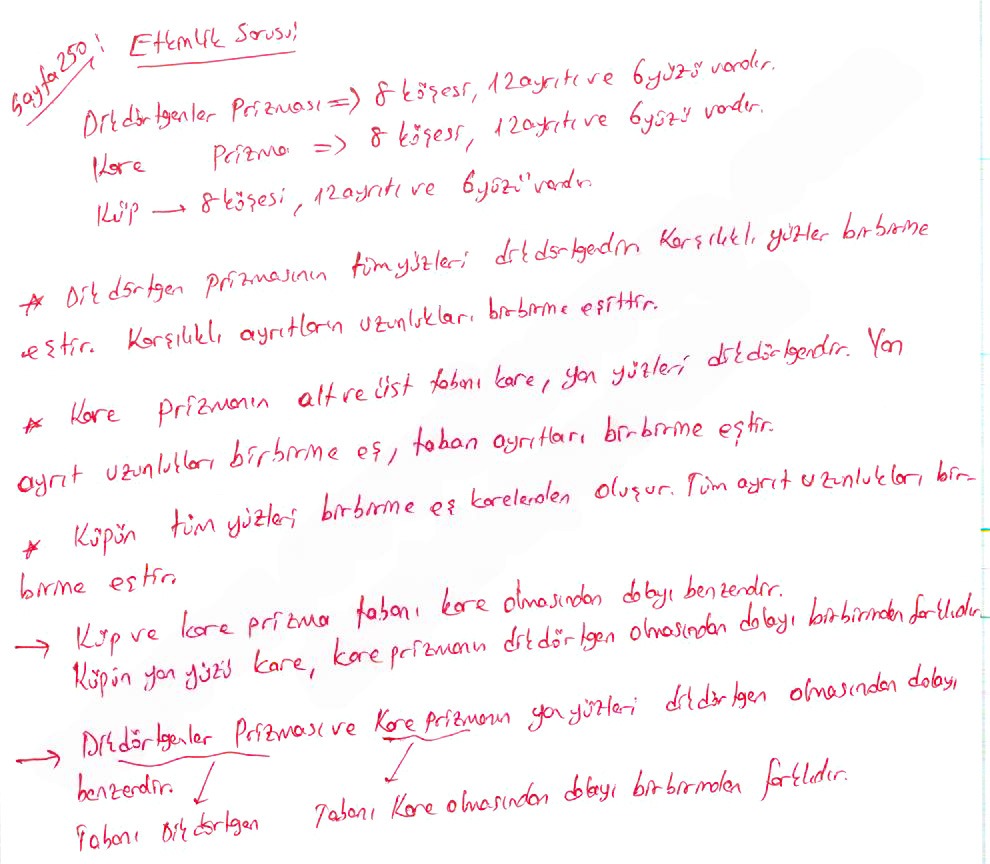 Sayfa 250: Etkinlik Sorusu:
Dikdörtgenler Prizması => 8 köşesi, 12 ayrıtı ve 6 yüzü vardır.
Kare Prizma => 8 köşesi, 12 ayrıtı ve 6 yüzü vardır.
Küp → 8 köşesi, 12 ayrıtı ve 6 yüzü vardır.
* Dikdörtgen prizmasının tüm yüzleri dikdörtgendir. Karşılıklı yüzler birbirine
eştir. Karşılıklı ayrıtların uzunlukları birbirine eşittir.
* Kare prizmanın alt ve üst tabanı kare, yan yüzleri dikdörtgendir. Yan
ayrıt uzunlukları birbirine eş, taban ayrıtları birbirine eştir.
* Küpün tüm yüzleri birbirine eş karelerden oluşur. Tüm ayrıt uzunlukları bir-
birine eştir.
→ Küp ve kare prizma tabanı kare olmasından dolayı benzerdir.
Küpün yan yüzü kare, kare prizmanın dikdörtgen olmasından dolayı birbirinden farklıdır.
→ Dikdörtgenler Prizması ve Kare prizmanın yan yüzleri dikdörtgen olmasından dolayı
benzerdir.
Tabanı Dikdörtgen Tabanı Kare olmasından dolayı birbirinden farklıdır.